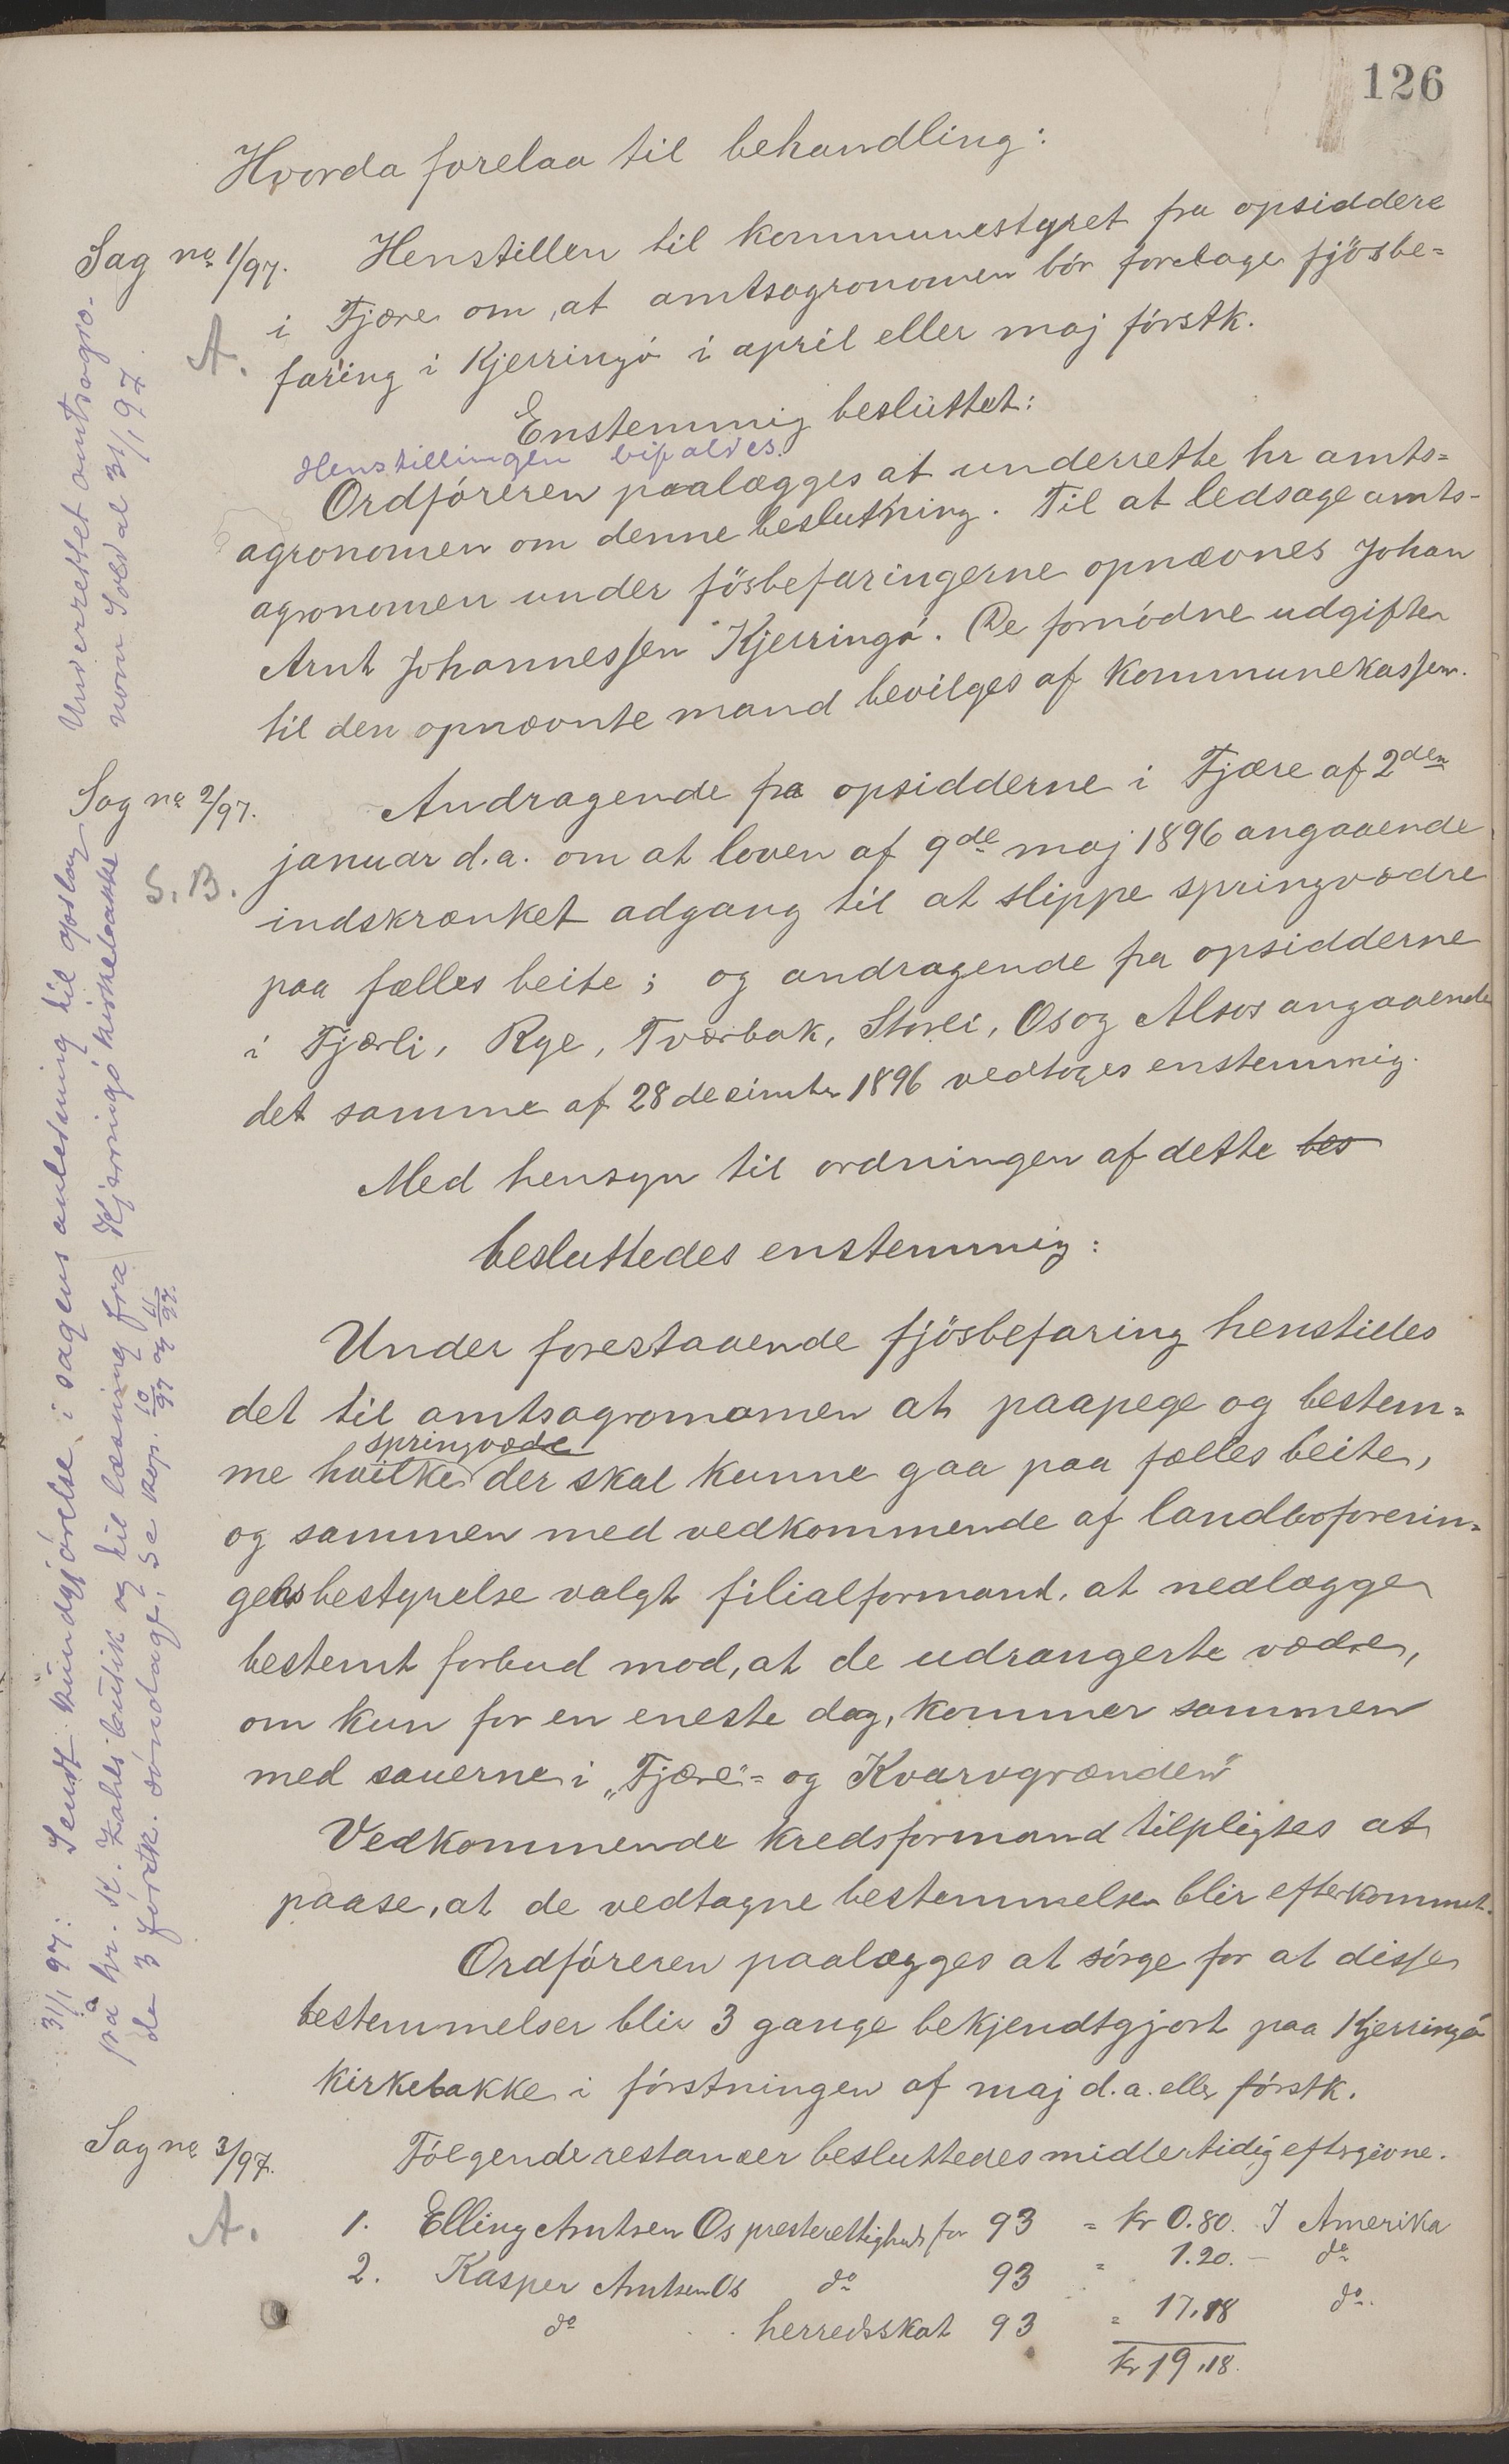 126
Hvorda forelaa til behandling:
Sag no 1/97. Henstillen til kommunestyret fra opsiddere
A. i Fjære om, at amtsagronomen bör foretage fjösbe=
faring i Kjerringö i april eller maj förstk.
Enstemmig besluttet:
Henstillingen bifaldes.
Ordföreren paalægges at underrette hr amts=
agronomen om denne beslutning. Til at ledsage amts-
agronomen under fösbefaringerne opnævnes Johan
Arnt Johannessen Kjerringö. De fornödne udgifter
til den opnævnte mand bevilges af kommunekassen.
Underrettet amtsagro-
nom Soldal 31/1 97.
Sag no 2/97. Andragende fra opsidderne i Fjære af 2den
januar d.a. om at loven af 9de maj 1896 angaaende
S.B. indskrænket adgang til at slippe springvædre
paa fælles beite; og andragende fra opsidderne
i Fjærli, Rye, Tværbak, Storli, Os og Alsos angaaende
det samme af 28 desimbr 1896 vedtoges enstemmig.
Med hensyn til ordningen af dette bes
besluttedes enstemmig:
Under forestaaende fjösbefaring henstides
det til amtsagronomen at paapege og bestem=
springvæde
me hvilke der skal kunne gaa paa fælles beite,
og sammen med vedkommende af landboforenin=
gens bestyrelse valgt filialformand, at nedlægge
bestemt forbud mod, at de udrangerte vædre,
om kun for en eneste dag, kommer sammen
med sauerne i „Fjære"= og Kvarvgrænden"
Vedkommende kredsformand tilpligtes at
paase, at de vedtagne bestemmelser blir efterkommet.
Ordföreren paalægges at sörge for at disse
bestemmelser blir 3 gange bekjendtgjort paa Kjerringö
kirkebakke i förstningen af maj d.a. eller förstk.
31/1 97: Sendt kundgjörelse i sagens anledning til opslag
på hr. K. Zahls butik og til læsning fra Kjerringö kirkebakke
de 3 förstk. söndage, se kop. 10/97 og 11/97.
Sag no 3/97. Fölgende restanser besluttedes midlertidig eftergivne.
A. 1. Elling Arntsen Os presterettighed for 93 = kr 0.80. I Amerika
2. Kasper Arntsen Os do 93 = 1.20. – do
do herredsskat 93 = 17.18 do.
kr 19,18.